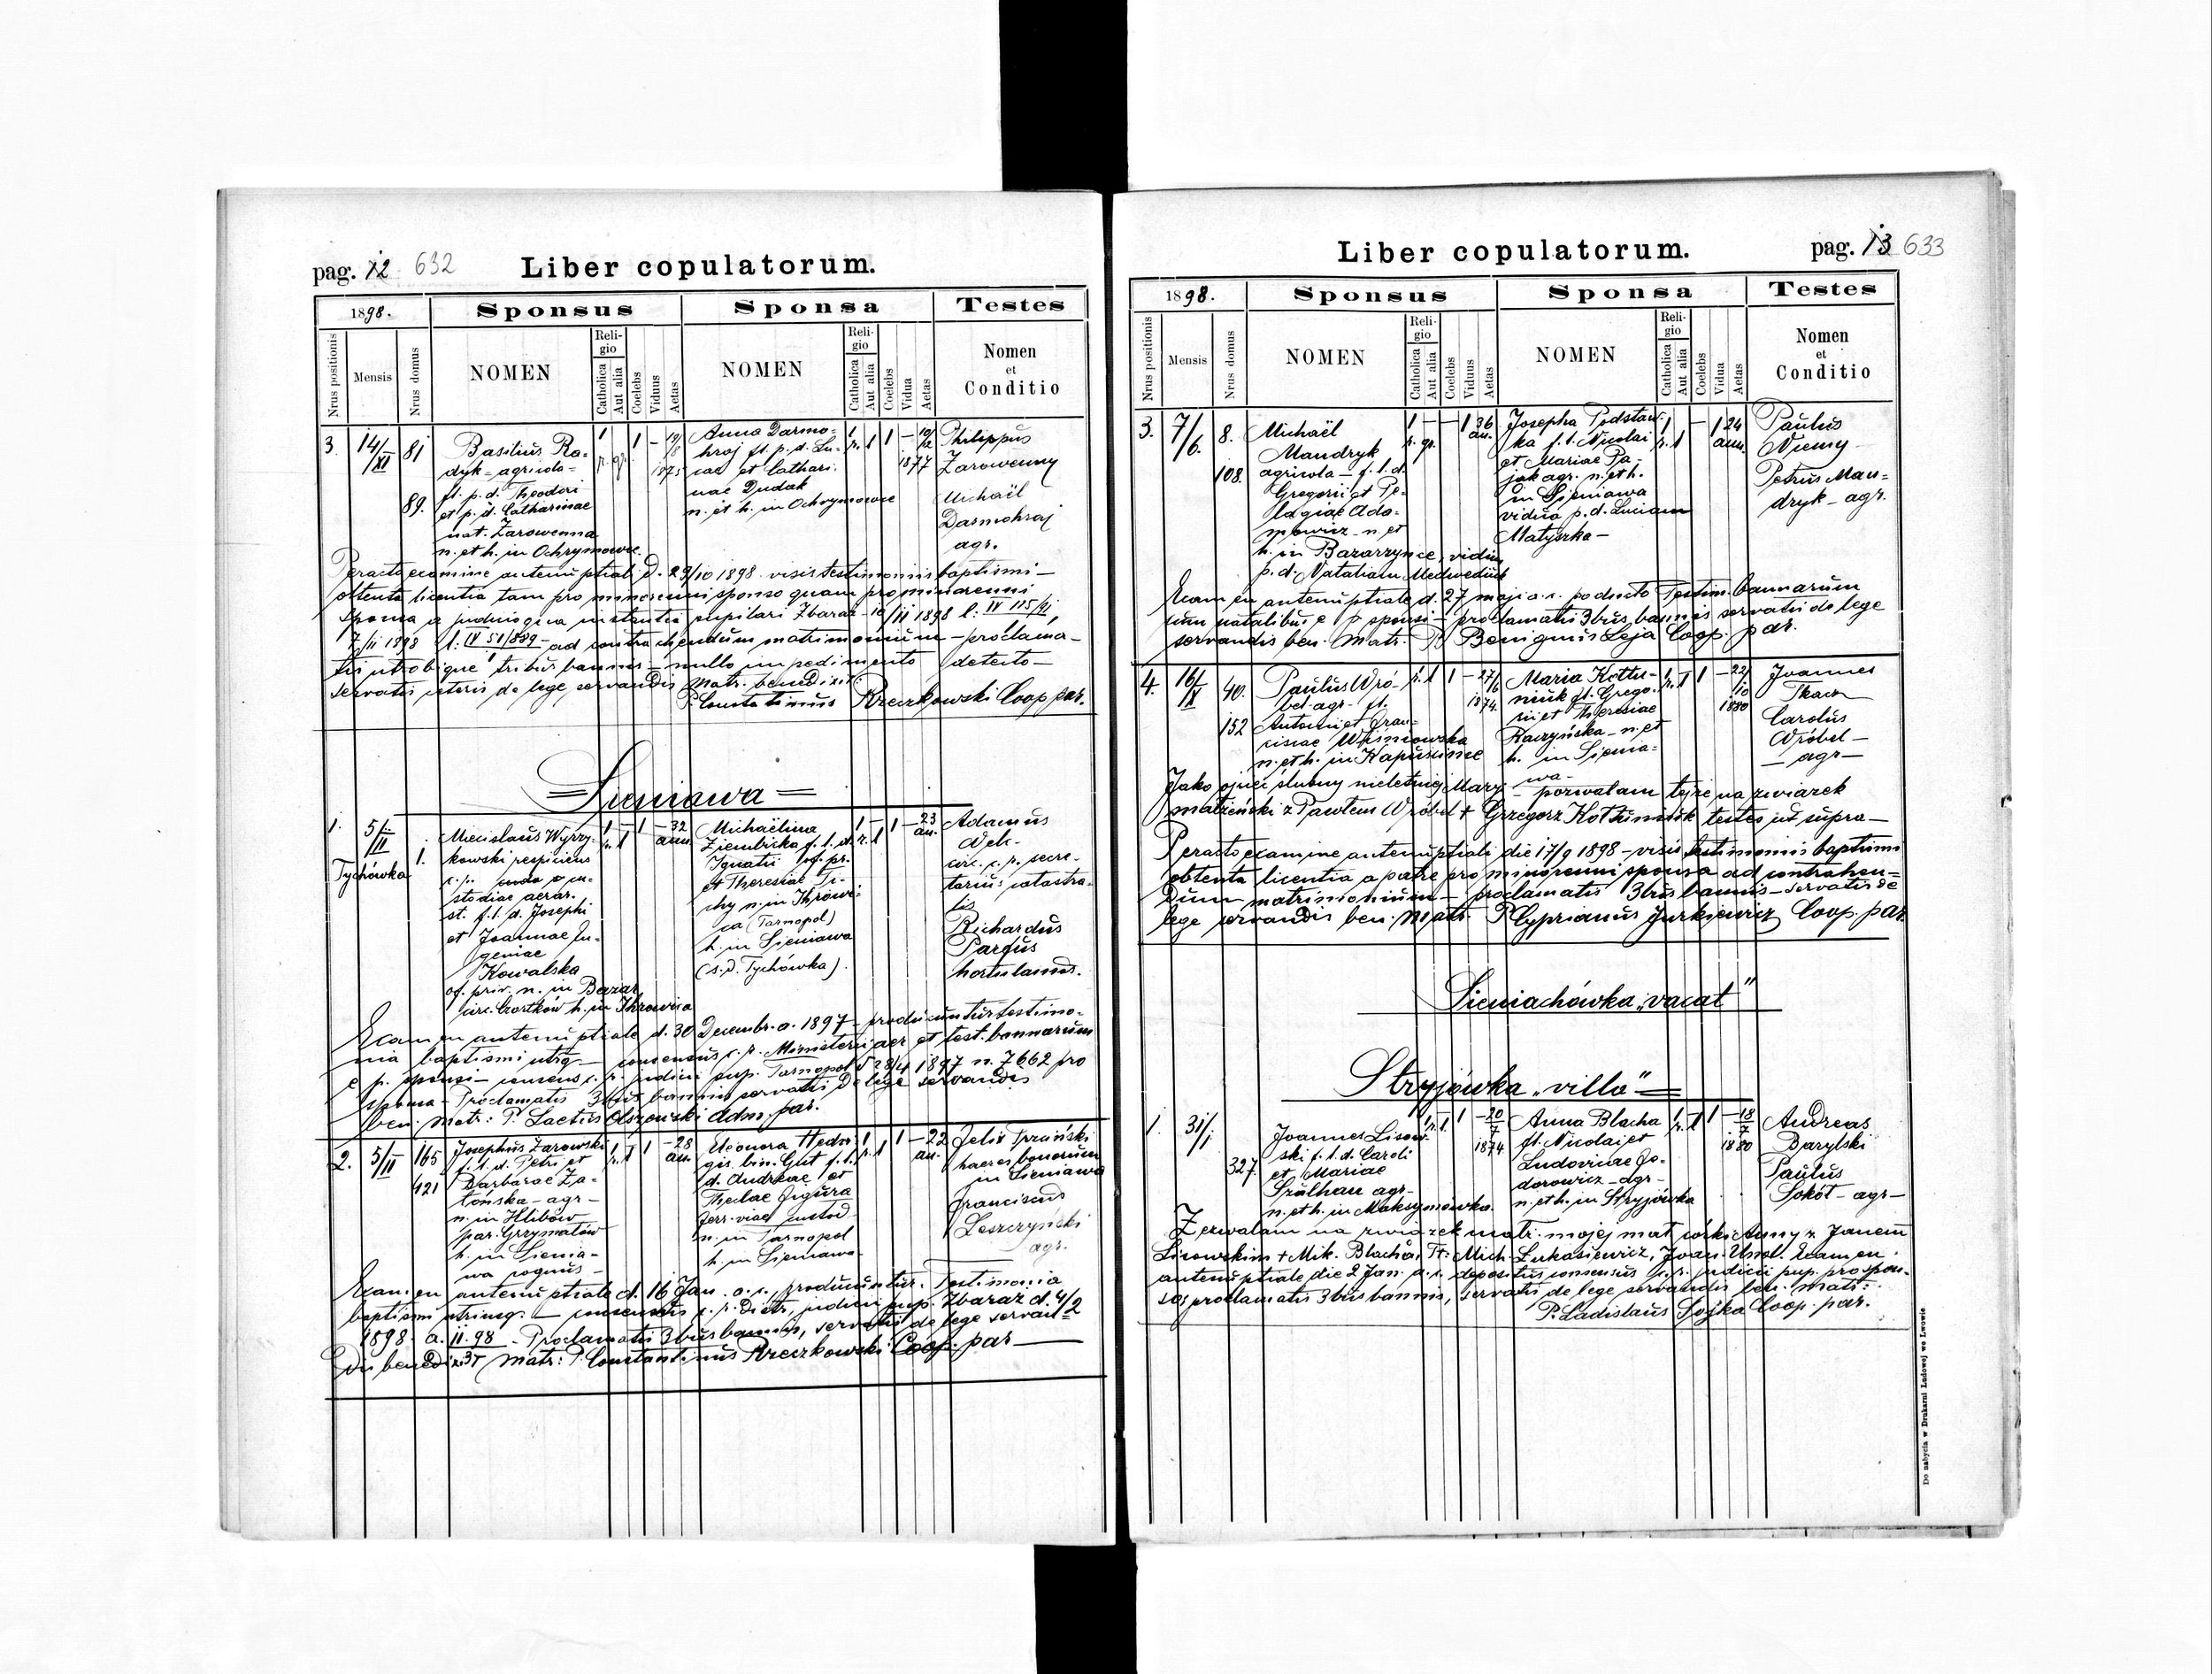 pag. 12 632 Liber copulatorum.
1898. Sponsus Sponsa Testes
Nrus positionis Mensis Nrus domus NOMEN Religio Catholica Aut alia Coelebs Viduus Aetas NOMEN Religio Catholica Aut alia Coelebs Vidua Aetas Nomen et Conditio
3. 14/XI 81
89.
Basilius Ra-
dyk - agricola -
fl. p. d. Theodori
et p. d. Catharinae
nat. Zarowenna
n. et h. in Ochrymowce
1 r. gr. 1 - 19/8 1875
Anna Darmo-
hraj fl. p. d. Lu-
cae et Cathari-
nae Dudak
n. et h. in Ochrymowce
1 r. l 1 - 10/12 1877
Philippus
Zarowenny
Michaël
Darmohraj
agr.
Peracto examine antenuptiali d. 29/10 1898 visis testimoniis baptismi -
obtenta licentia tam pro minorenni sponso quam pro minorenni
sponsa a judiciis qua instantia pupilari Zbaraż 10/11 1898 l: IV 115/91,
7/11 1898 l: IV 51/889 - ad contrahendum matrimonium - proclama-
tis utrobique tribus bannis - nullo impedimento detecto -
servatis ceteris de lege servandis Matr. benedixit:
P. Constantinus Rzeczkowski Coop. par.
= Sieniawa =
1. 5/II
Tychówka 1.
Miecislaus Wyrzy-
kowski respiciens
c. r. cu-
stodiae aerar.
st. f. l. d. Josephi
et Joannae Eu-
geniae
Kowalska
of. priv. n. in Bazar
circ. Czortków h. in Ihrowica
1 r. l 1 - 32 ann.
Michaëlina
Ziembicka f. l. d.
Ignatii of. pr.
et Theresiae Ti-
chy n. in Ihrowi-
ca (Tarnopol)
h. in Sieniawa
(s. d. Tychówka).
1 r. l 1 - 23 an.
Adamus
Welc-
circ. c. r. secre-
tarius catastra-
lis
Richardus
Pargus
hortulanus.
Examen antenuptiale d. 30 Decembr. a. 1897 - producuntur testimo-
nia baptismi utrq. - consensus c. r. Ministerii aer et test. bannorum
e p. sponsi - consens c. r. judicii pup. Tarnopol d 28/4 1897 n. 7662 pro
sponsa - Proclamatis 3bus bannis servatis de lege servandis
ben. Matr: P. Laetus Olszewski adm. par.
2. 5/II 165
421
Josephus Zarowski
f. l. d. Petri et
Barbarae Za-
tońska - agr -
n. in Hlibów
par. Grzymałów
h. in Sienia-
wa
1 r. l 1 - 28 an.
Eleonora Hedvi-
gis bin. Gut f. l.
d. Andreae et
Theclae Figura
ferr. viae custod.
n. in Tarnopol
h. in Sieniawa
1 r. l 1 - 22 an.
Felix
haeres bonorum
in Sieniawa
Franciscus
Leszczyński
agr.
Examen antenuptiale d. 16 Jan. a. c., producuntur. Testimonia
baptismi utriusq. - consensus c. r. Distr. judicii pup. Zbaraż d. 4/2
1898 a. 11. 98 - Proclamatis 3bus bannis, servatis de lege servan-
dis benedixit Matr: P. Constantinus Rzeczkowski Coop. par -
Liber copulatorum. pag. 13 633
1898. Sponsus Sponsa Testes
Nrus positionis Mensis Nrus domus NOMEN Religio Catholica Aut alia Coelebs Viduus Aetas NOMEN Religio Catholica Aut alia Coelebs Vidua Aetas Nomen et Conditio
3. 7/6. 8.
108.
Michaël
Mandryk
agricola - f. l. d.
Gregorii et Pe-
lagiae Ado-
mowicz - n. et
h. in Bazarzynce, viduus
p. d. Nataliam Medwediuk
1 r. gr. - 1 36 an.
Josepha Podstaw-
ka f. l. Nicolai
et Mariae Pa-
jak agr. n. et h.
in Sieniawa
vidua p. d. Luciam
Matyszka -
1 r. l - 1 24 ann.
Paulus
Niemy -
Petrus Man-
dryk - agr.
Examen antenuptiale d. 27 maji a. c. producto Testim. bannorum
cum natalibus e p sponsi - proclamatis 3bus bannis servatis de lege
servandis ben. Matr. P. Benignus Leja Coop. par.
4. 16/X 40.
152
Paulus Wró-
bel agr. fl.
Antonii et Fran-
ciscae Wiśniowska
n. et h. in Kapuścińce
r. l 1 - 27/6 1874.
Maria Kottu-
niuk fl. Grego-
rii et Theresiae
Raczyńska - n. et
h. in Sienia-
wa -
1 r. l 1 - 22/10 1880
Joannes
Tkacz
Carolus
Wróbel -
- agr -
Jako ojciec ślubny nieletniej Mary - pozwalam tejże na związek
małżeński z Pawłem Wróbel + Grzegorz Kottuniuk testes ut supra -
Peracto examine antenuptiali die 17/9 1898 - visis testimoniis baptismi
obtenta licentia a patre pro minorenni sponsa ad contrahen-
dum matrimonium - proclamatis 3bus bannis - servatis de
lege servandis ben. Matr. P. Cyprianus Jurkiewicz Coop. par.
Sieniachówka „vacat"
Stryjówka „villa" =
1. 31/1
327.
Joannes Lisow-
ski f. l. d. Caroli
et Mariae
Szulhan agr -
n. et h. in Maksymówka.
r. l 1 - 20/7 1874
Anna Blacha
fl. Nicolai et
Ludovicae Fe-
dorowicz - agr -
n. et h. in Stryjówka
1 r. l 1 - 18/7 1880
Andreas
Darylski
Paulus
Sokół - agr -
Zezwalam na związek matr. mojej mał. córki Anny z Janem
Lisowskim + Mik. Blacha, T: Mich. Łukasiewicz, Joan. Examen
antenuptiale die 2 Jan. a. c. depositus consensus c. r. judicii pup. pro spon-
sa, proclamatis 3bus bannis, servatis de lege servandis ben. Matr:
P. Ladislaus Sojka Coop. par.
Do nabycia w Drukarni Ludowej we Lwowie